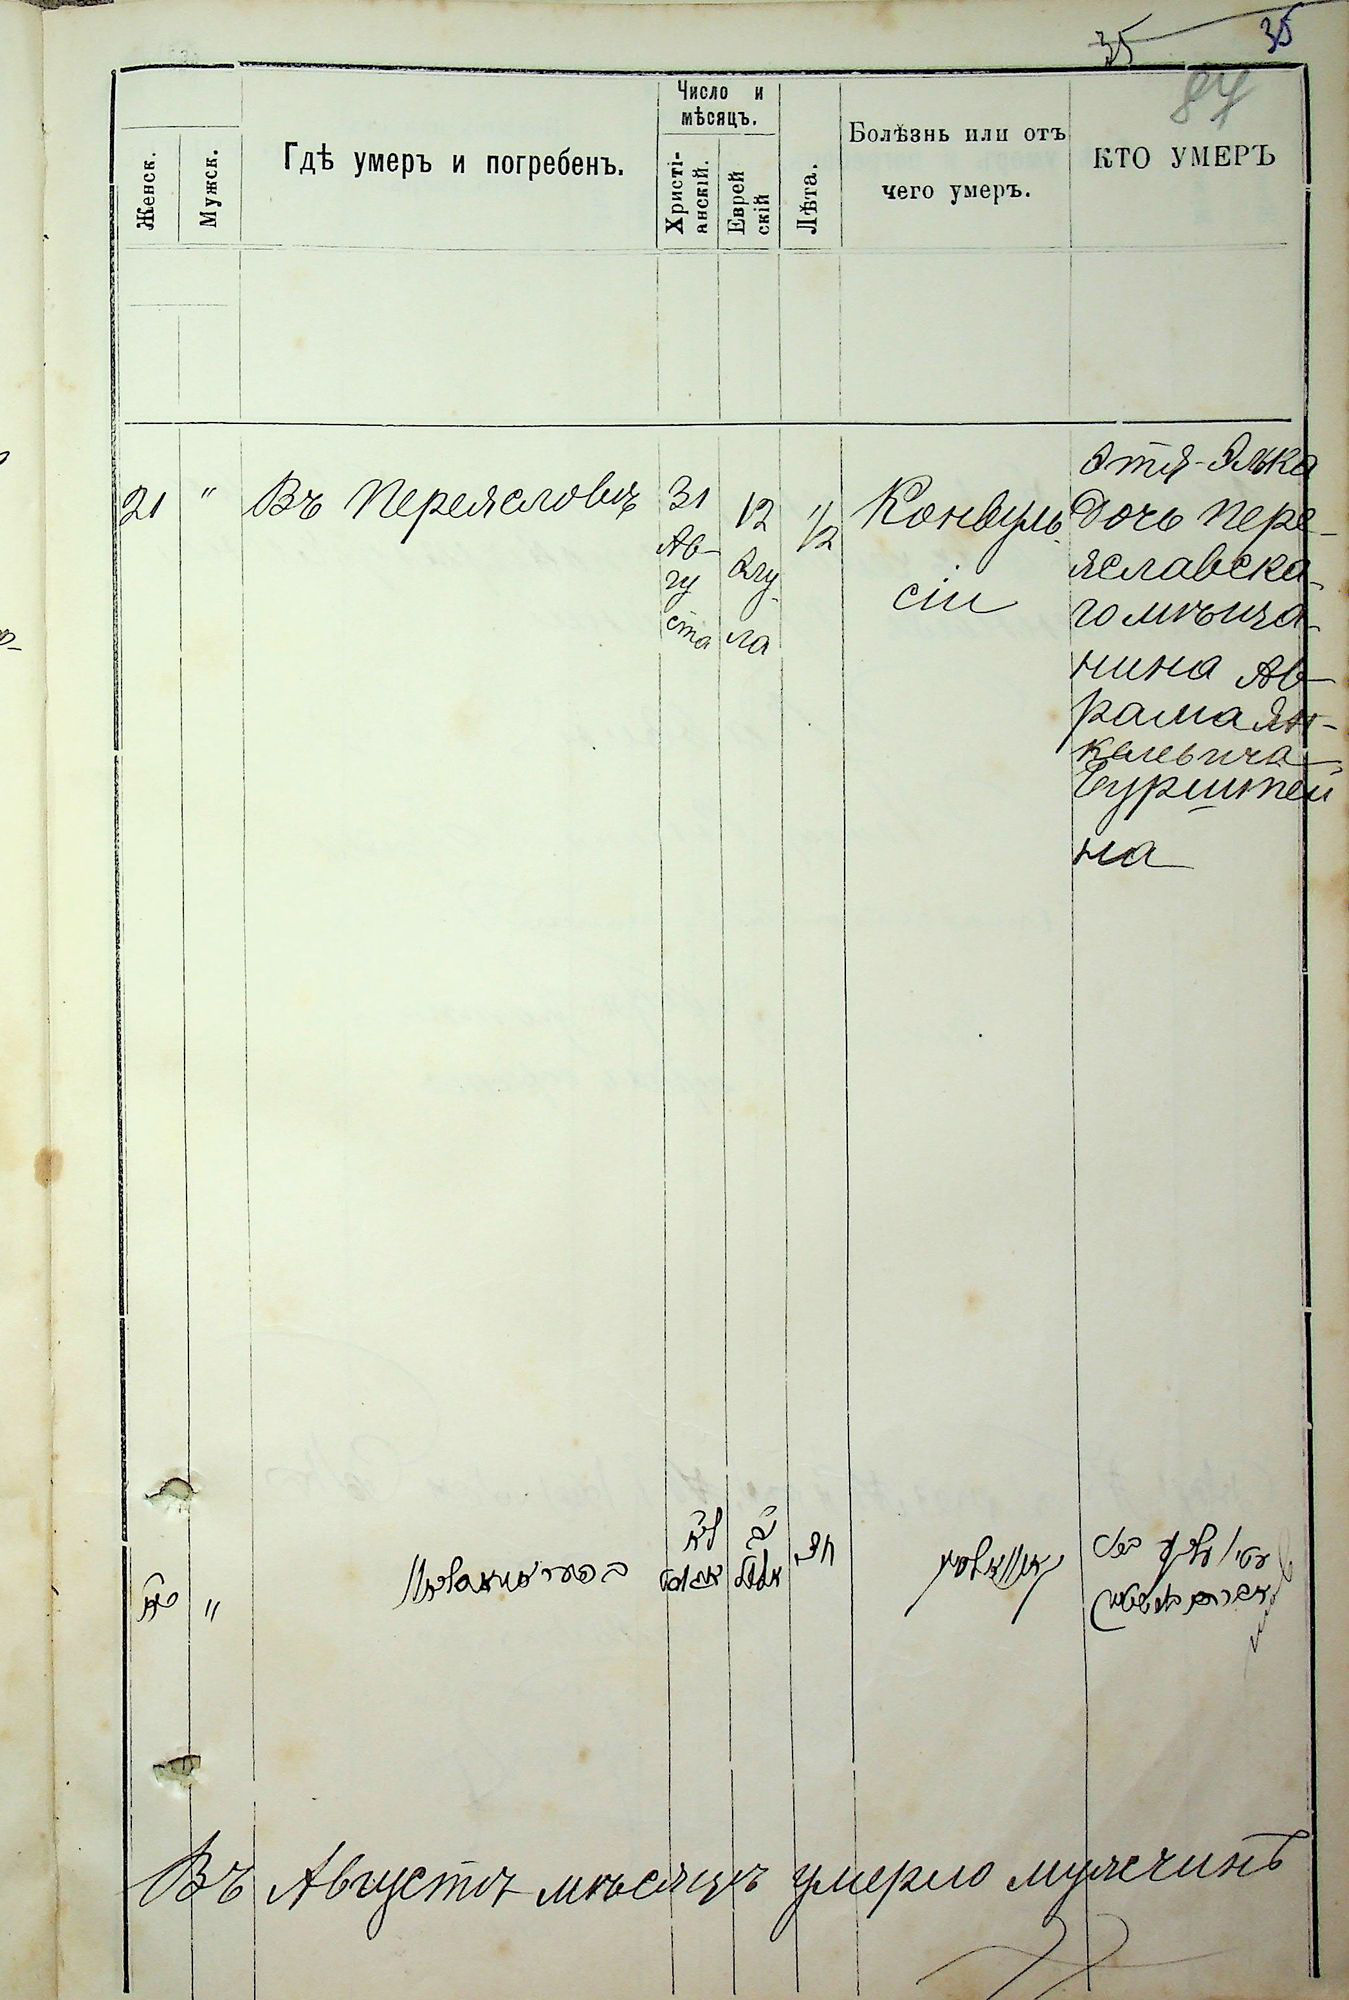 35 35
87
Женск.
Мужск.
Гдѣ умеръ и погребенъ.
Число и
мѣсяцъ.
Христі-
анскій.
Еврей
скій
Лѣта.
Болѣзнь или отъ
чего умеръ.
КТО УМЕРЪ
21
"
Въ Переяславѣ
31
Ав-
гу
ста
12
Элу-
ла
1/2
Конвуль-
сіи
Этя-Элька
дочь Пере-
яславска-
го мѣща-
нина Ав-
рама Ян-
келевича
Бурштей
на
"
בעיר
לא
אוגוסט
יב
אלול
אברהם בורשטיין
Въ Августѣ мѣсяцѣ умерло мужчинъ